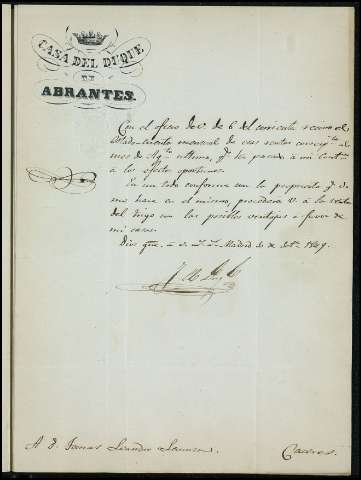 CASA DEL DUQUE
DE
ABRANTES.
Con el fecho de V. de 6 del corriente recivo el
Estado-cuenta mensual de esas rentas correspte. al
mes de Agto. último, qe. he pasado á mi Contª.
á los efectos oportunos.
En un todo conforme con la propuesta qe. V.
me hace en el mismo, procederá V. á la venta
del trigo con las posibles ventajas á favor de
mi casa.
Dios gue. á V. Madrid de Setre. 1849.
A D. Tomas Leandro
Caceres.